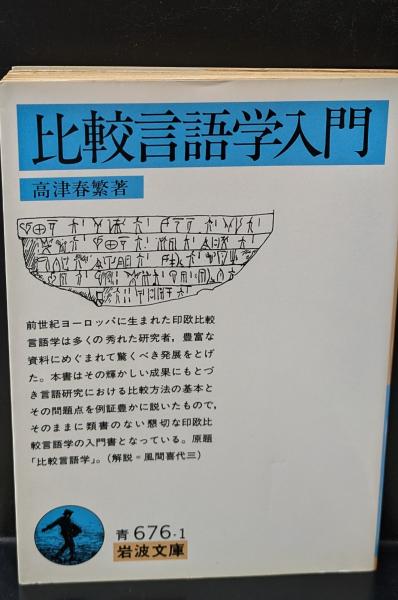 比較言語学入門
高津春繁著
前世紀ヨーロッパに生まれた印欧比較
言語学は多くの秀れた研究者，豊富な
資料にめぐまれて驚くべき発展をとげ
た。本書はその輝かしい成果にもとづ
き言語研究における比較方法の基本と
その問題点を例証豊かに説いたもので，
そのままに類書のない懇切な印欧比
較言語学の入門書となっている。原題
「比較言語学」。（解説＝風間喜代三）
青676-1
岩波文庫